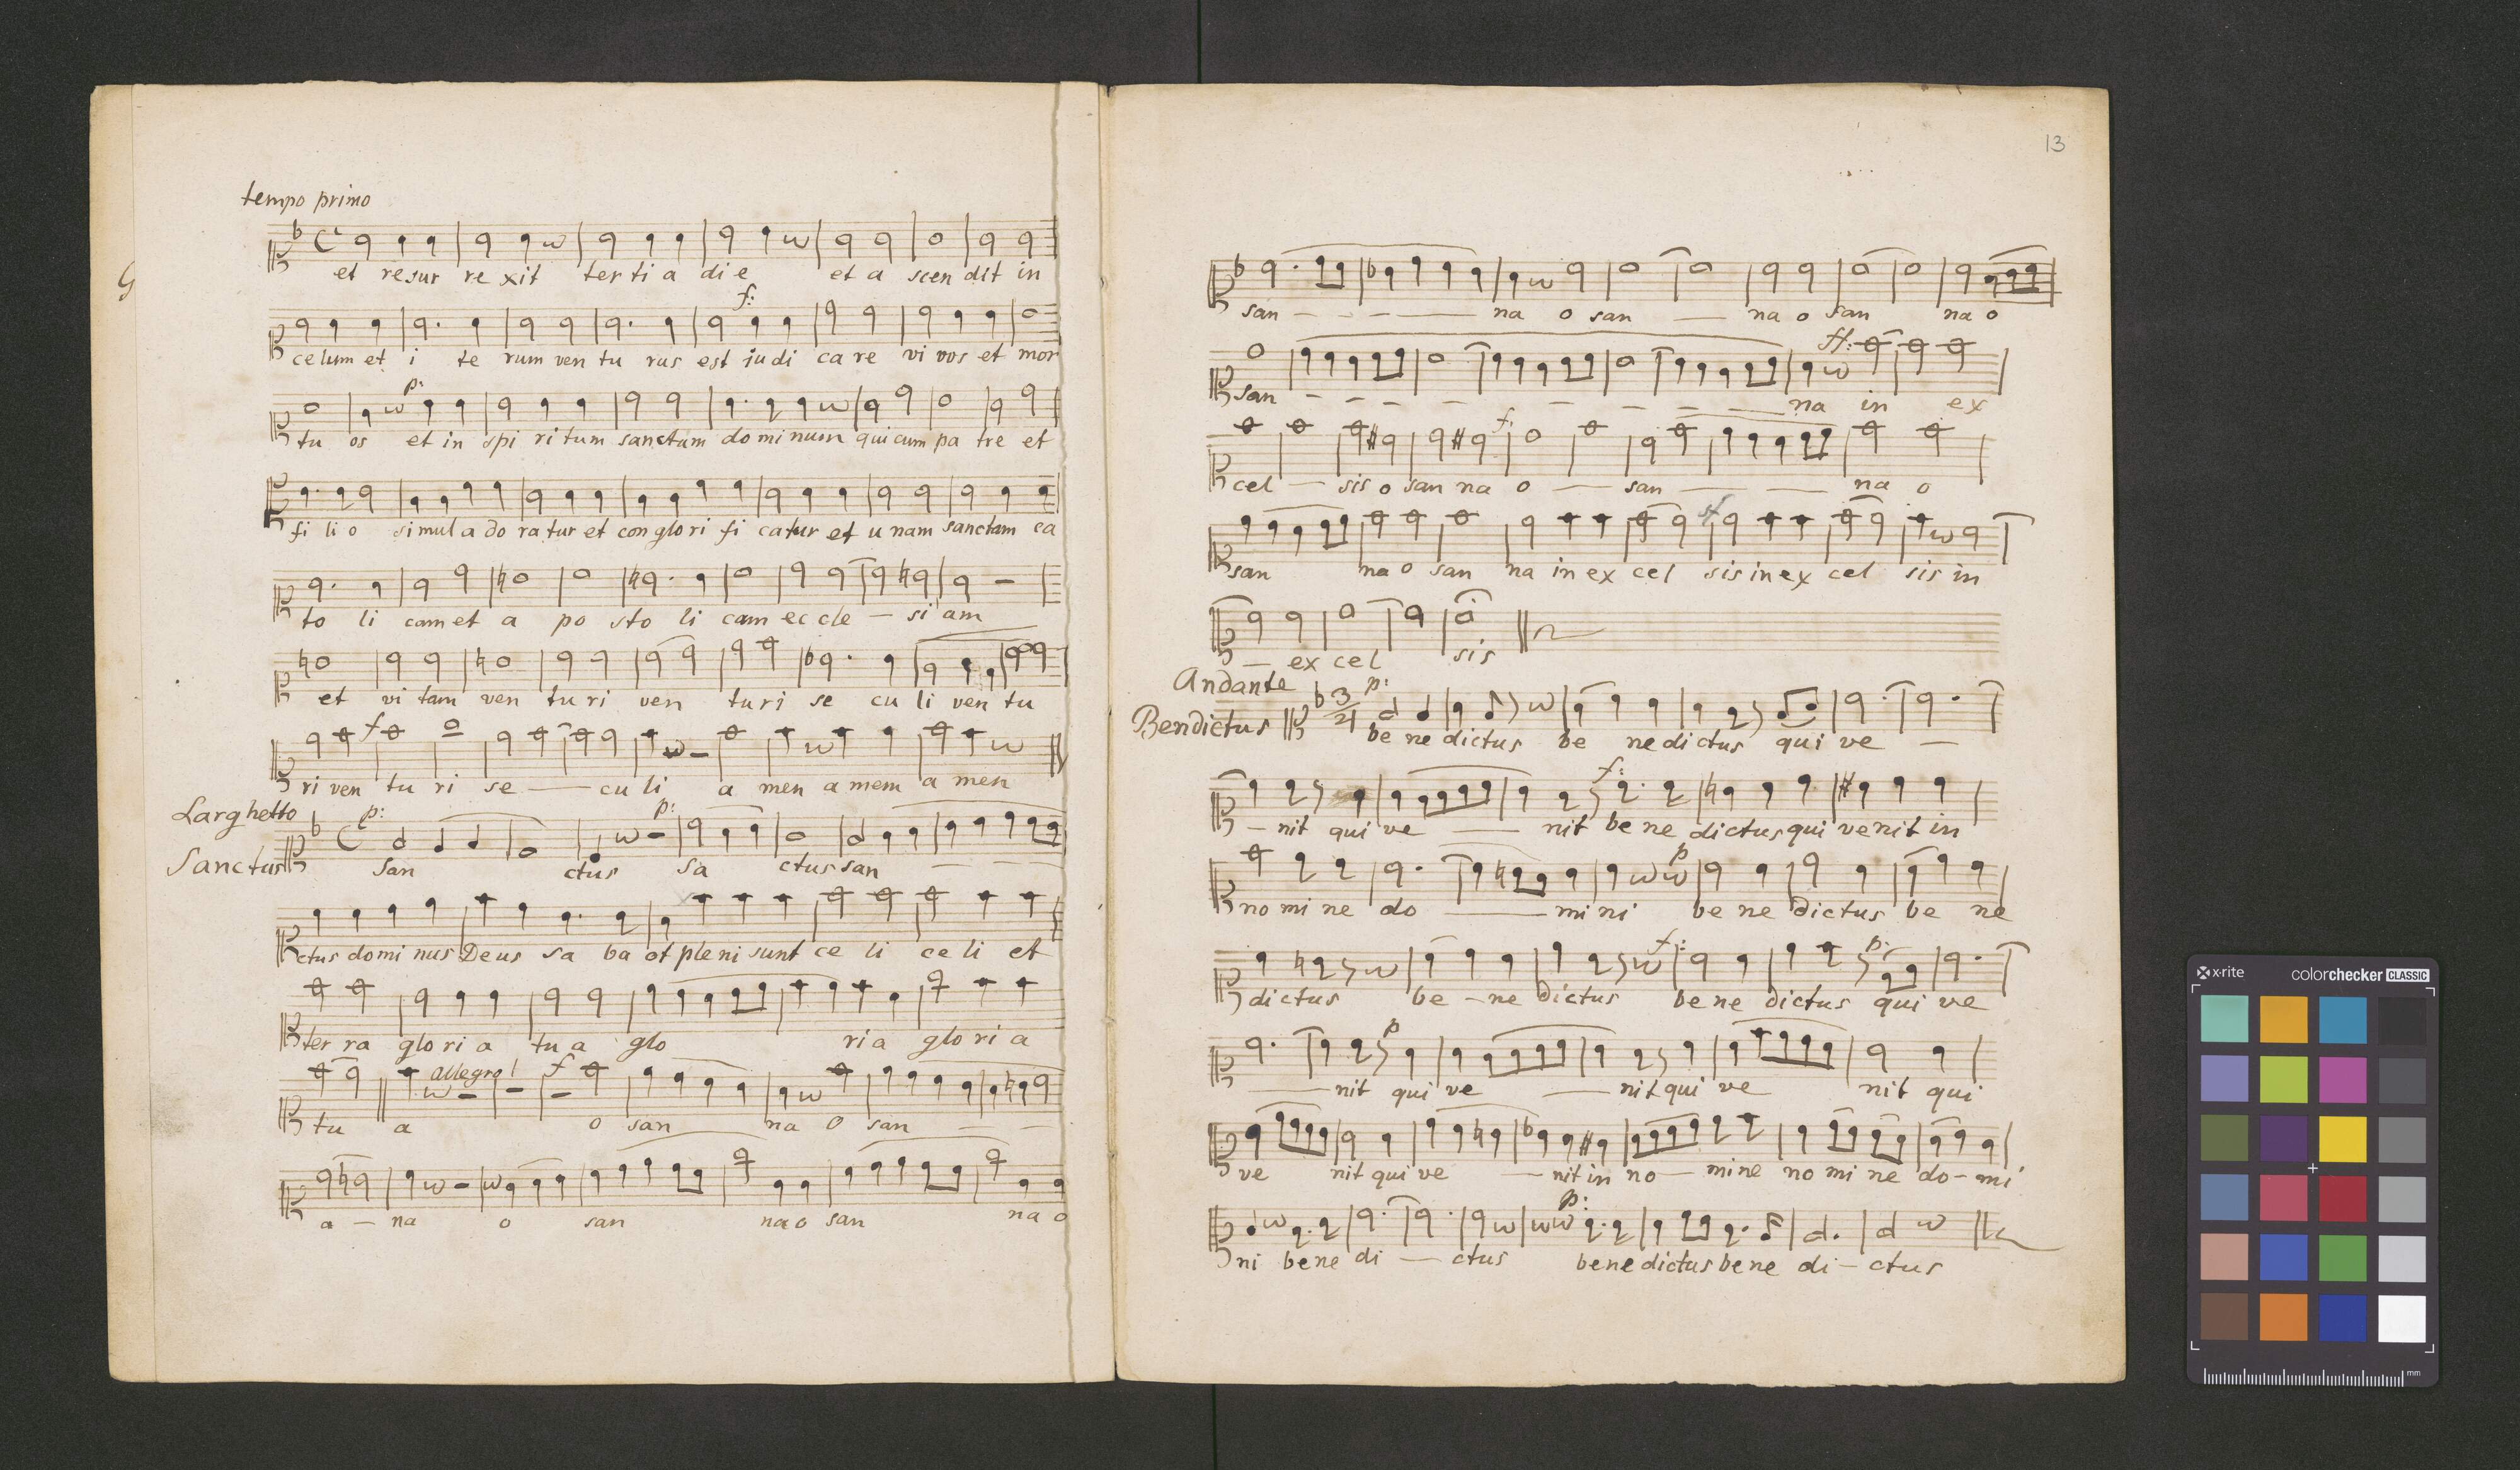 tempo primo
et resur re xit ter ti a di e et a scen dit in
f:
celum et i te rum ven tu rus est iudi ca re vi vos et mor
p:
tu os et in spi ri tum sanctum dominum qui cum pa tre et
fi li o simul a do ratur et conglori fi catur et unam sanctam ca
to li cam et a po sto li cam ec cle — si am
et vi tam ven tu ri ven turi se cu li ven tu
f
ri ven tu ri se — cu li a men a mem a men
Larghetto
p: p:
Sanctus san ctus sa ctus san — — —
ctus domi nus Deus sa ba ot pleni sunt ce li ce li et
ter ra glo ri a tu a glo ria glo ri a
allegro f
tu a o san na o san — —
a — na o san na o san na o
13
san — - - — na o san — na o san na o
ff:
san - - - - - - - — na in ex
f.
cel — sis o san na o — san — — na o
san na o san na in ex cel sis in ex cel sis in
— ex cel sis
Andante p:
Bendictus 3/4 be ne dictus be ne dictus qui ve —
f:
- nit qui ve — nit be ne dictus qui venit in
p
no mi ne do — mi ni be ne dictus be ne
f: p:
dictus be - ne dictus be ne dictus qui ve
p
— nit qui ve — nit qui ve nit qui
ve nit qui ve — nit in no — mine no mi ne do - mi
p:
ni bene di — ctus bene dictus be ne di — ctus
x-rite colorchecker CLASSIC
mm